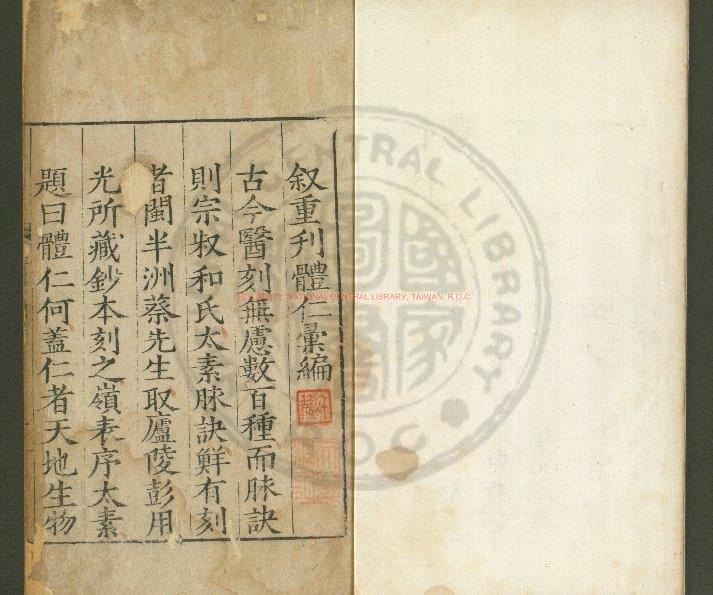 叙重刋體仁彙編
古今醫刻無慮數百種而脉訣
則宗叔和氏太素脉訣鮮有刻
者閩半洲蔡先生取廬陵彭用
光所藏鈔本刻之嶺表序太素
題曰體仁何蓋仁者天地生物
NATIONAL CENTRAL LIBRARY, TAIWAN, R.O.C
CENTRAL LIBRARY
R.O.C